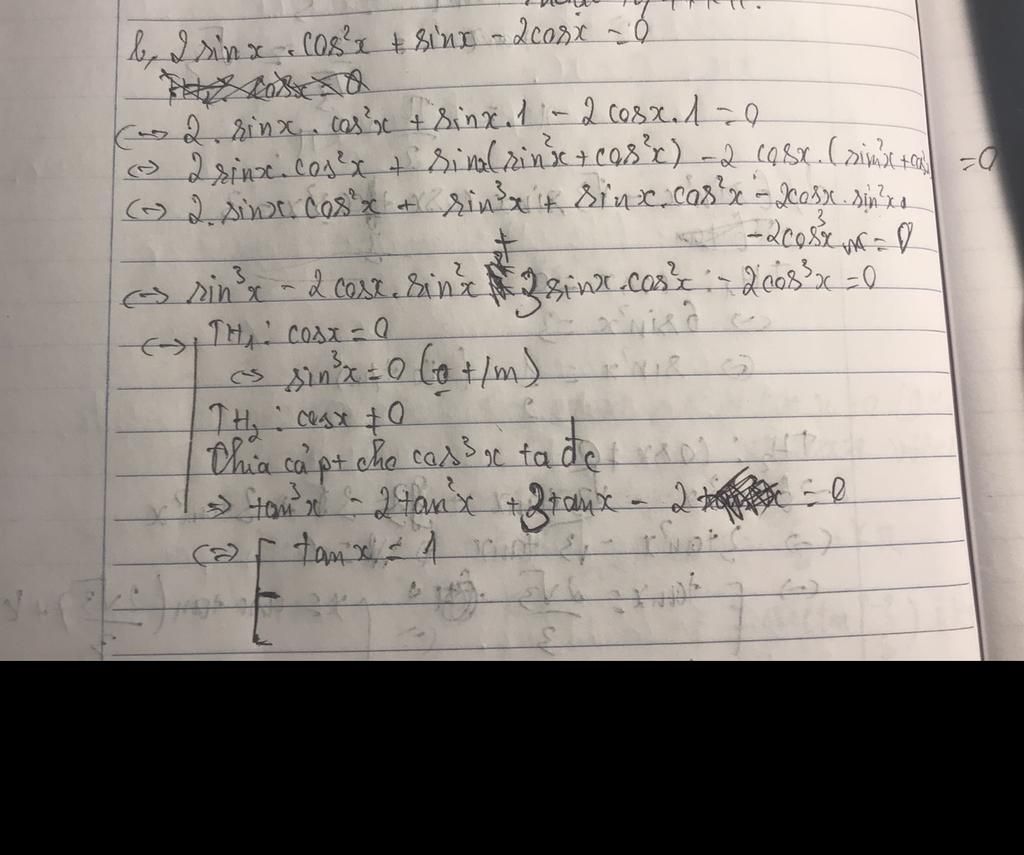 b, 2 sinx . cos²x + sinx - 2cosx = 0
<-> 2. sinx. cos²x + sinx.1 - 2 cosx.1 = 0
<=> 2sinx.cos²x + sinx(sin²x + cos²x) - 2 cosx.(sin²x + cos =0
<=> 2.sinx.cos²x + sin³x + sinx.cos²x - 2cosx.sin²x
- 2cos³x = 0
<-> sin³x - 2cosx.sin²x + 3sinx.cos²x - 2cos³x = 0
<-> TH₁: cosx = 0
<=> sin³x = 0 ( t/m)
TH₂: cosx ≠ 0
Chia cả pt cho cos³x ta đc
=> tan³x - 2tan²x + 3tanx - 2 = 0
<=> [ tanx = 1